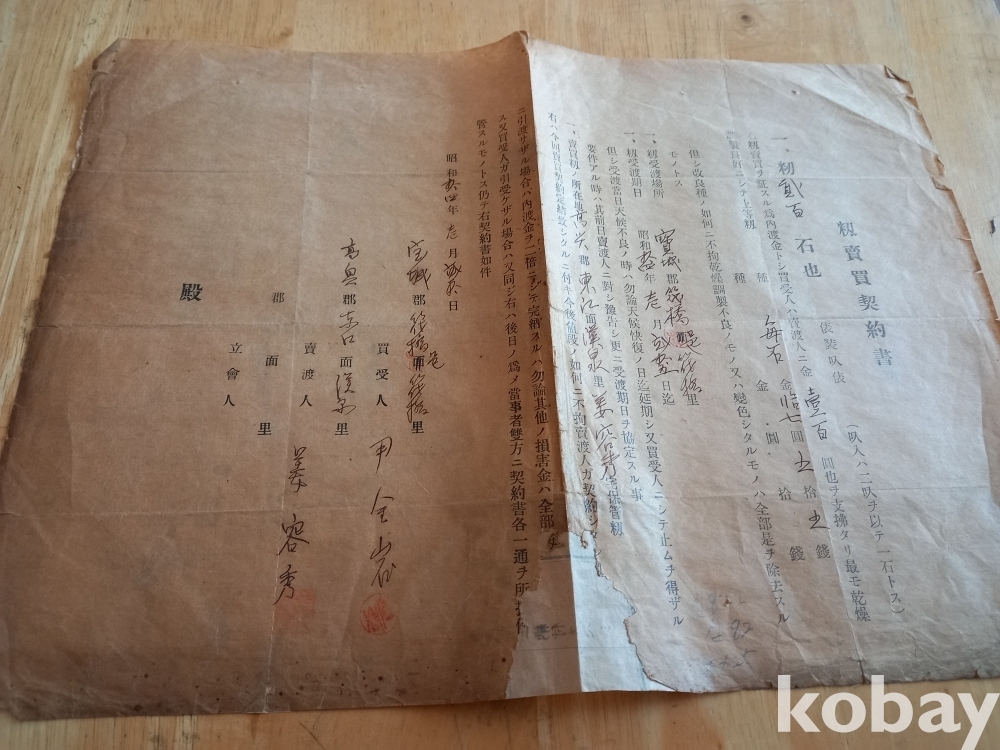 籾賣買契約書
一、籾貳百石也 俵裝叺俵(叺入ハ二叺ヲ以テ一石トス)
每石金拾七圓五拾五錢
種金圓拾錢
右籾賣買ヲ証スル爲内渡金トシ買受人ハ賣渡人ニ金壹百圓也ヲ支拂タリ最モ乾燥
調製良好ニシテ上等籾
但シ改良種ノ如何ニ不拘乾燥調製不良ノモノ又ハ變色シタルモノハ全部是ヲ除去スル
モノトス
一、籾受渡場所 寶城郡筏橋邑筏橋里
一、籾受渡期日 昭和 年 月 日迄
但シ受渡當日天候不良ノ時ハ勿論天候快復ノ日迄延期シ又買受人ニシテ止ムヲ得ザル
要件アル時ハ其前日賣渡人ニ對シ豫告シ更ニ受渡期日ヲ協定スル事
一、賣買籾ノ所在地高興郡東江面漢泉里姜容秀 保管籾
右ハ今回賣買契約定結致シタルニ付キ今後値段ノ如何ニ不拘賣渡人ガ契約
ニ引渡サザル場合ハ内渡金ヲ一倍ニシテ完納スルハ勿論其他ノ損害金ハ全部
ス又買受人ガ引受ケザル場合ハ又同ジ右ハ後日ノ爲メ當事者雙方ニ契約書各一通ヲ所持保
管スルモノトス仍テ右契約書如件
昭和 年 月 日
宝城郡筏橋邑筏橋里
買受人
高興郡東江面漢泉里
賣渡人 姜容秀
郡面里
立會人
殿
kobay